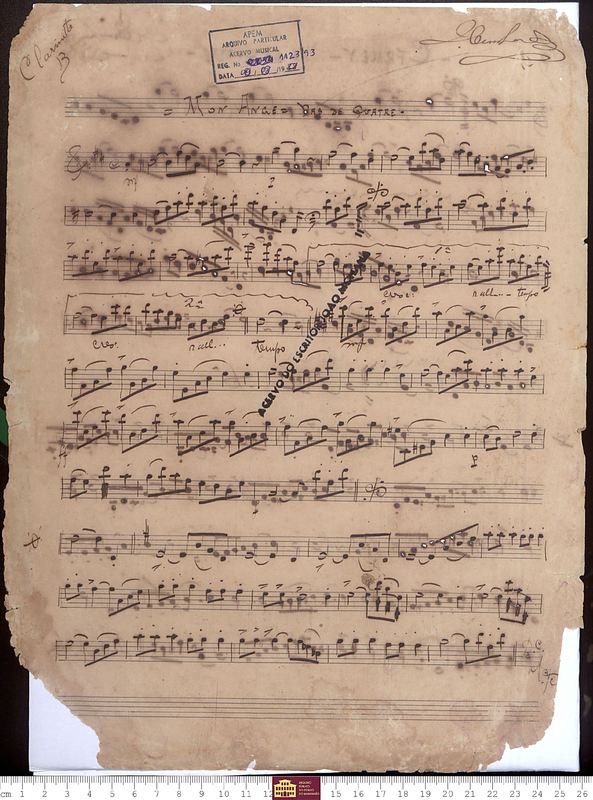 Clarineta
B
APEM
ARQUIVO PARTICULAR
ACERVO MUSICAL
REG. No 1123/93
DATA
= MON ANGE = PAS DE QUATRE -
1ª
cresc:
rall... tempo
2ª
cres:
rall...
tempo
mf
ACERVO DO ESCRITOR JOÃO MOHANA
ff
p
D.C.
cm 1 2 3 4 5 6 7 8 9 10 11 12 15 16 17 18 19 20 21 22 23 24 25 26